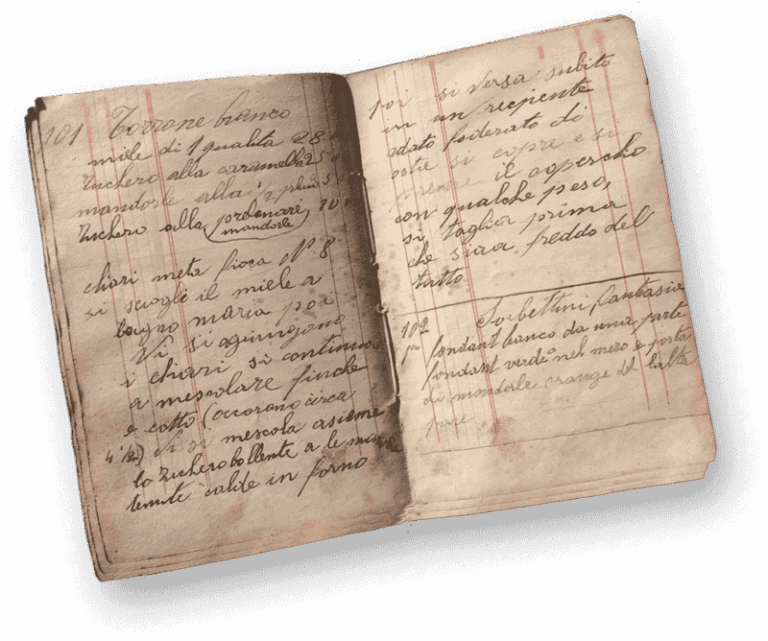 101 Torrone bianco
miele di 1 qualita 28
Zuchero alla caramella 25
mandorle alla 1/2
Zuchero alla prelenare mandorle 10
chiari meta fioca Nº 8
si scogli il miele a
bagno maria poi
Vi si agiungono
i chiari si continua
a mescolare finche
e cotto (occorono circa
4 1/2) Vi si mescola asieme
lo Zuchero bollente a le
tenute calde in forno
poi si versa subito
in un recipiente
adato foderato di
ostie si copre e si
preme il coperchio
con qualche peso,
si taglia prima
che siaa freddo del
tutto
102 Sorbettini fantasia
fondant bianco da una parte
fondant verde nel mezo e posta
di mandorle orange